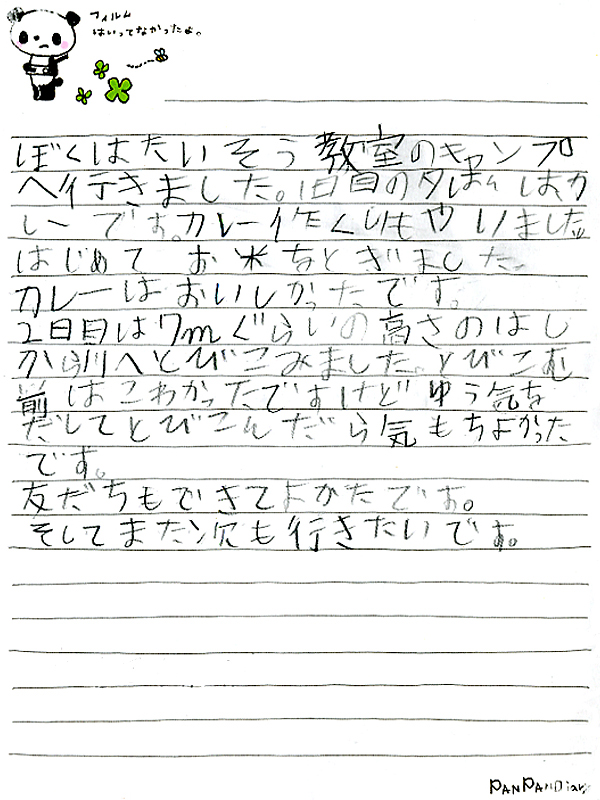 フィルム
はいってなかったよ。
ぼくはたいそう教室のキャンプ
へ行きました。1日目の夕はんはカ
レーです。カレー作くりもやりました。
はじめてお米をとぎました。
カレーはおいしかったです。
2日目は7mぐらいの高さのはし
から川へとびこみました。とびこむ
前はこわかったですけどゆう気を
だしてとびこんだら気もちよかった
です。
友だちもできてよかたです。
そしてまた次も行きたいです。
PANPANDiary